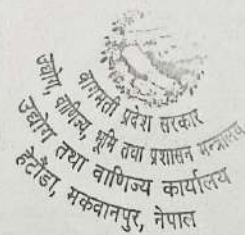 वागमती प्रदेश सरकार
उद्योग, वाणिज्य, भूमि तथा प्रशासन मन्त्रालय
उद्योग तथा वाणिज्य कार्यालय
हेटौंडा, मकवानपुर, नेपाल